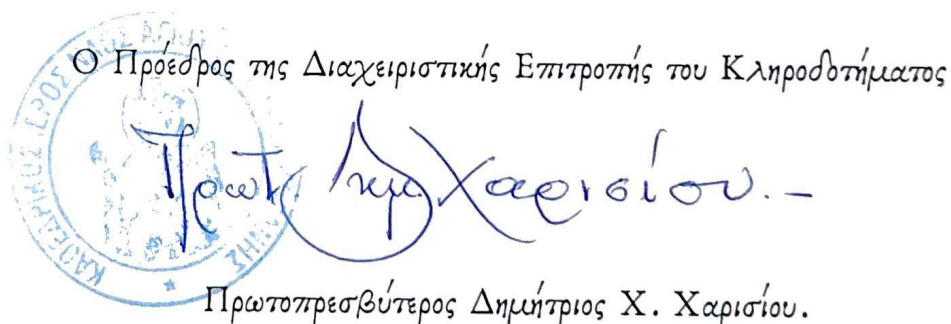 Ο Πρόεδρος της Διαχειριστικής Επιτροπής του Κληροδοτήματος
Πρωτ. Δημ. Χαρισίου.-
Πρωτοπρεσβύτερος Δημήτριος Χ. Χαρισίου.
ΚΑΘΕΔΡΙΚΟΣ ΙΕΡΟΣ ΝΑΟΣ